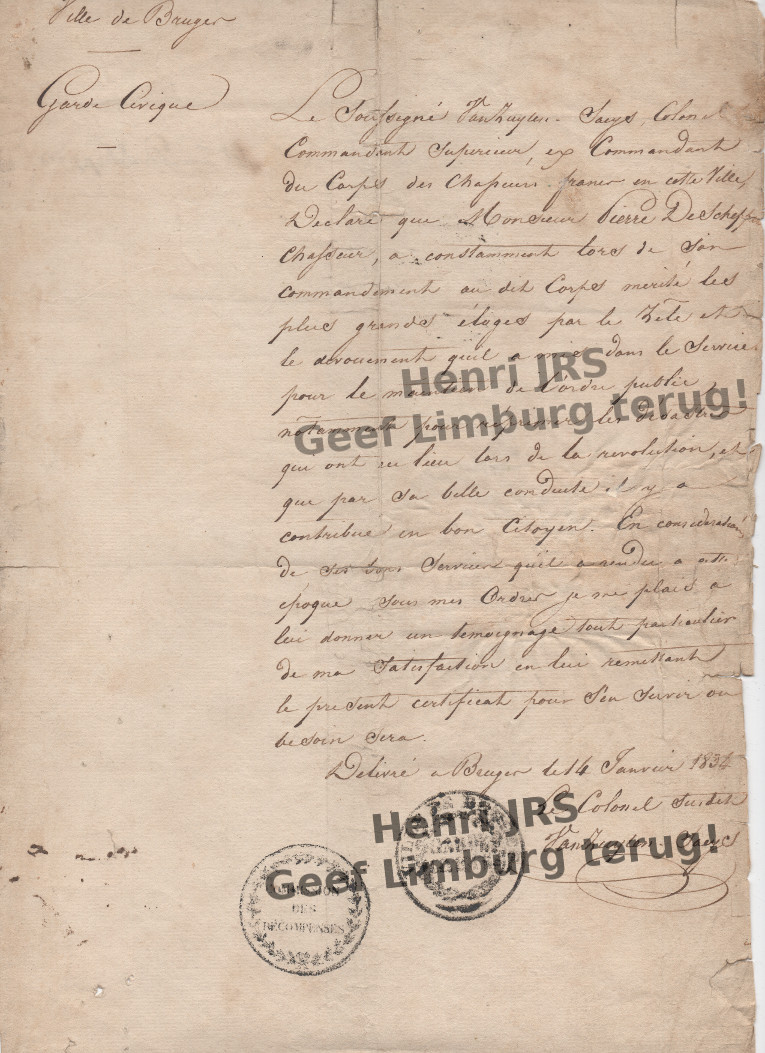 Ville de Bruges
Garde Civique
Le Soussigné VanZuylen. Saeys, Colonel
Commandant Superieur, ex Commandant
du Corps des Chasseurs francs en cette Ville,
Declare que Monsieur Pierre DeSchep
Chasseur, a constamment lors de son
commandement au dit Corps merité les
plus grands éloges par le Zèle et
le devouement qu'il a mis dans le Service
pour le maintien de l'ordre public,
notamment pour reprimer les desastres
qui ont eu lieu lors de la revolution, et
que par sa belle conduite il y a
contribué en bon Citoyen. En consideration
de ses bons Services qu'il a rendu a cette
epoque sous mes Ordres je me plais a
lui donner un temoignage tout particulier
de ma Satisfaction en lui remettant
le present certificat pour s'en servir ou
besoin sera.
Delivré a Bruges le 14 Janvier 1834
Le Colonel susdit
VanZuylen Saeys
COMMISSION
DES
RÉCOMPENSES
Henri JRS
Geef Limburg terug!
Henri JRS
Geef Limburg terug!